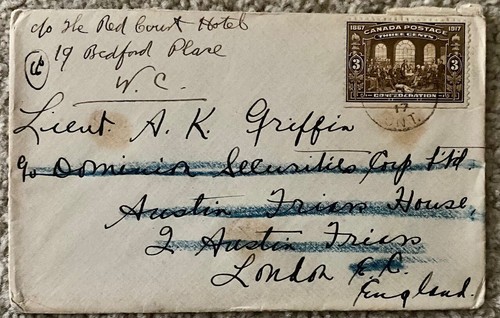 c/o The Red Court Hotel
19 Bedford Place
W.C.
1867 CANADA POSTAGE 1917
THREE CENTS
3 3
CONFEDERATION
17
ONT.
Lieut. A. K. Griffin
c/o Dominion Securities Corp Ltd.
Austin Friars House,
2 Austin Friars
London E.C.
England.